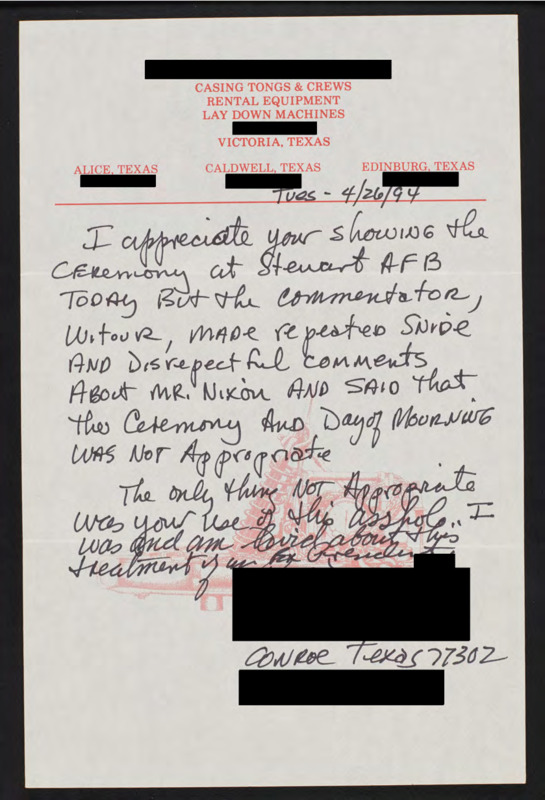 CASING TONGS & CREWS
RENTAL EQUIPMENT
LAY DOWN MACHINES
VICTORIA, TEXAS
ALICE, TEXAS CALDWELL, TEXAS EDINBURG, TEXAS
Tues - 4/26/94
I appreciate your showing the
Ceremony at Stewart AFB
TODAY But the commentator,
Witour, MADE repeated SNIDE
AND Disrepectful comments
About MR. Nixon AND SAID that
the Ceremony And Day of MOURNING
WAS NOT Appropriate
The only thing NOT Appropriate
was your use of this asshole. I
was and am livid about this
treatment of an Ex President
CONROE Texas 77302